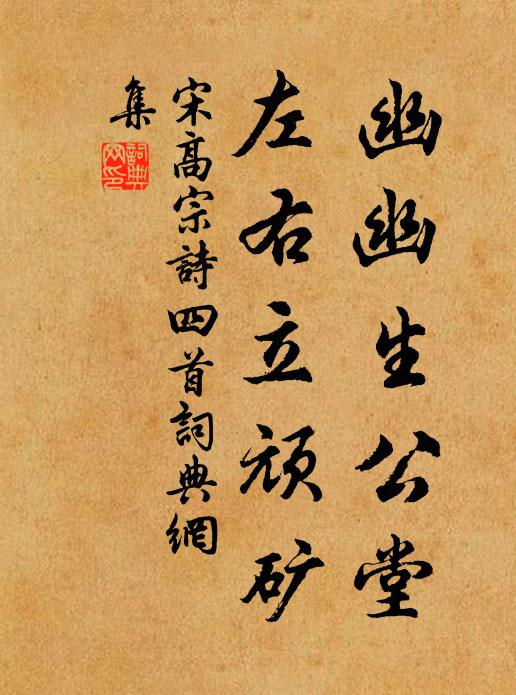 幽幽生公堂
左右立顽矿
宋高宗詩四首詞典網
集
詞典網印